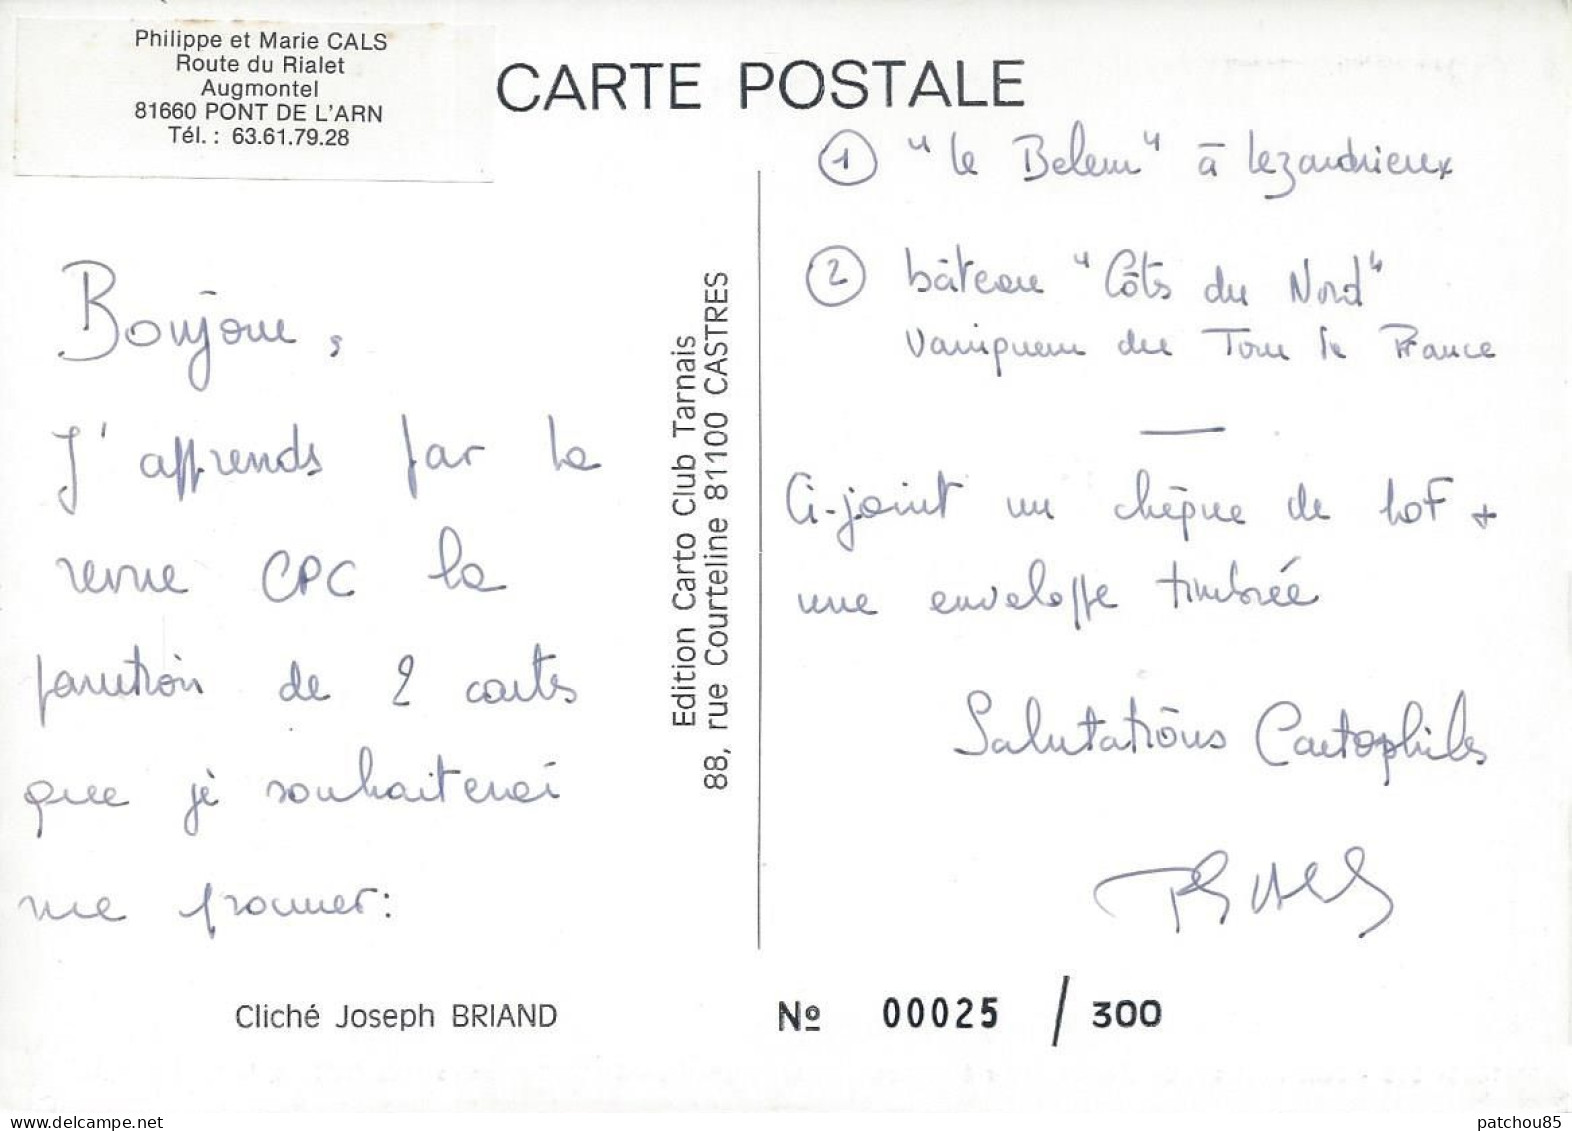 Philippe et Marie CALS
Route du Rialet
Augmontel
81660 PONT DE L'ARN
Tél. : 63.61.79.28
CARTE POSTALE
Bonjour,
J'apprends par la
revue CPC la
parution de 2 cartes
que je souhaiterai
me procurer:
Edition Carto Club Tarnais
88, rue Courteline 81100 CASTRES
① "le Belem" à Lezardrieux
② bâteau "Côts du Nord"
Vainqueur du Tour de France
Ci-joint un chèque de 10F +
une enveloppe timbrée
Salutations Cartophiles
Cliché Joseph BRIAND
Nº 00025 / 300
patchou85